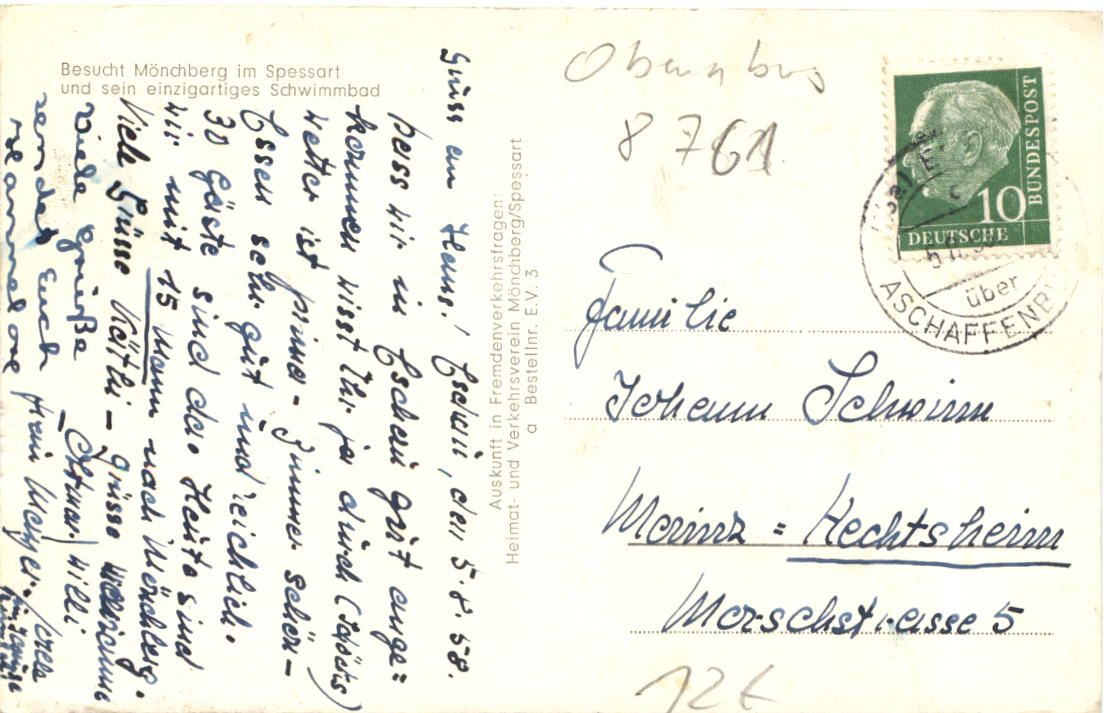 Besucht Mönchberg im Spessart
und sein einzigartiges Schwimmbad
Gruss an Hans! Eschau, den 5.8.58.
Dass wir in Eschau gut ange=
kommen wisst Ihr ja durch (Schöchs)
Wetter ist prima - Zimmer schön -
Essen sehr gut und reichlich.
30 Gäste sind da. Heute sind
wir mit 15 Mann nach Mönchberg.
Viele Grüsse Käthi - Grüsse
Viele Grüße Otmar, Willi
sendet Euch Frau Meyer
Auskunft in Fremdenverkehrsfragen:
Heimat- und Verkehrsverein Mönchberg/Spessart
a Bestellnr. E.V. 3
8761
DEUTSCHE
BUNDESPOST
10
über
ASCHAFFENBU
Familie
Johann Schwirm
Mainz = Hechtsheim
Morschstrasse 5
12€